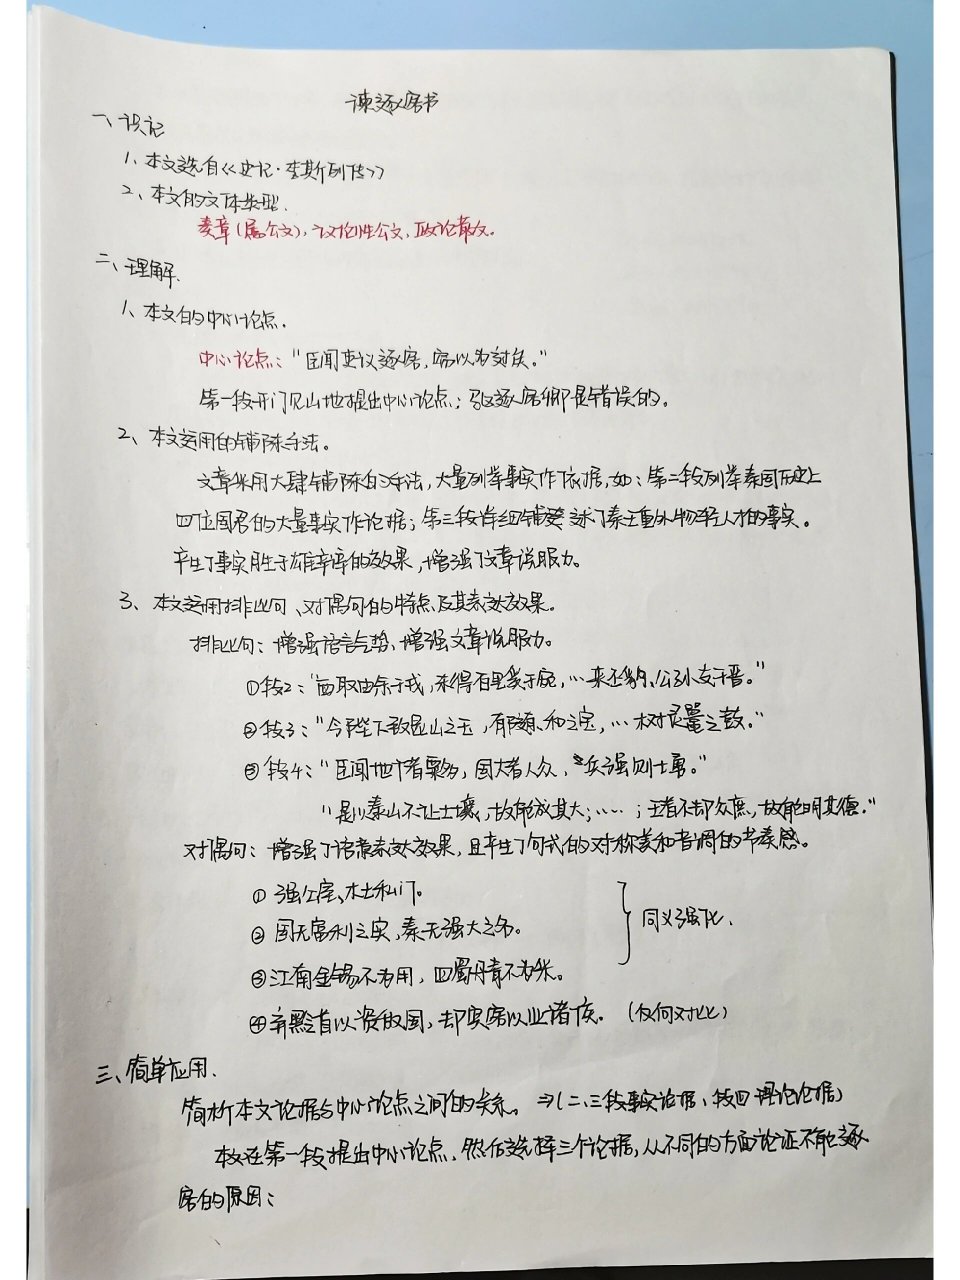 谏逐客书
一、识记
1、本文选自《史记·李斯列传》
2、本文的文体类型.
奏章(属公文),议论性公文,政论散文.
二、理解.
1、本文的中心论点.
中心论点:"臣闻吏议逐客,窃以为过矣."
第一段开门见山地提出中心论点;驱逐客卿是错误的.
2、本文运用的铺陈手法.
文章采用大肆铺陈的手法,大量列举事实作依据,如:第二段列举秦国历史上
四位国君的大量事实作论据;第三段详细铺叙了秦王重外物轻人才的事实.
产生了事实胜于雄辩的效果,增强了文章说服力.
3、本文运用排比句、对偶句的特点及其表达效果.
排比句:增强语言气势、增强文章说服力.
①段2:"西取由余于戎,东得百里奚于宛,…来丕豹、公孙支于晋."
②段3:"今陛下致昆山之玉,有随、和之宝,…树灵鼍之鼓."
③段4:"臣闻地广者粟多,国大者人众,兵强则士勇."
"是以泰山不让土壤,故能成其大;……;王者不却众庶,故能明其德."
对偶句:增强了语言表达效果,且产生了句式的对称美和音调的节奏感.
①强公室、杜私门.
②国无富利之实,秦无强大之名. 同义强化.
③江南金锡不为用,西蜀丹青不为采.
④弃黔首以资敌国,却宾客以业诸侯.(反向对比)
三、简单应用.
简析本文论据与中心论点之间的关系. ⇒(二、三段事实论据、段四理论论据)
本文在第一段提出中心论点,然后选择三个论据,从不同的方面论证不能逐
客的原因: